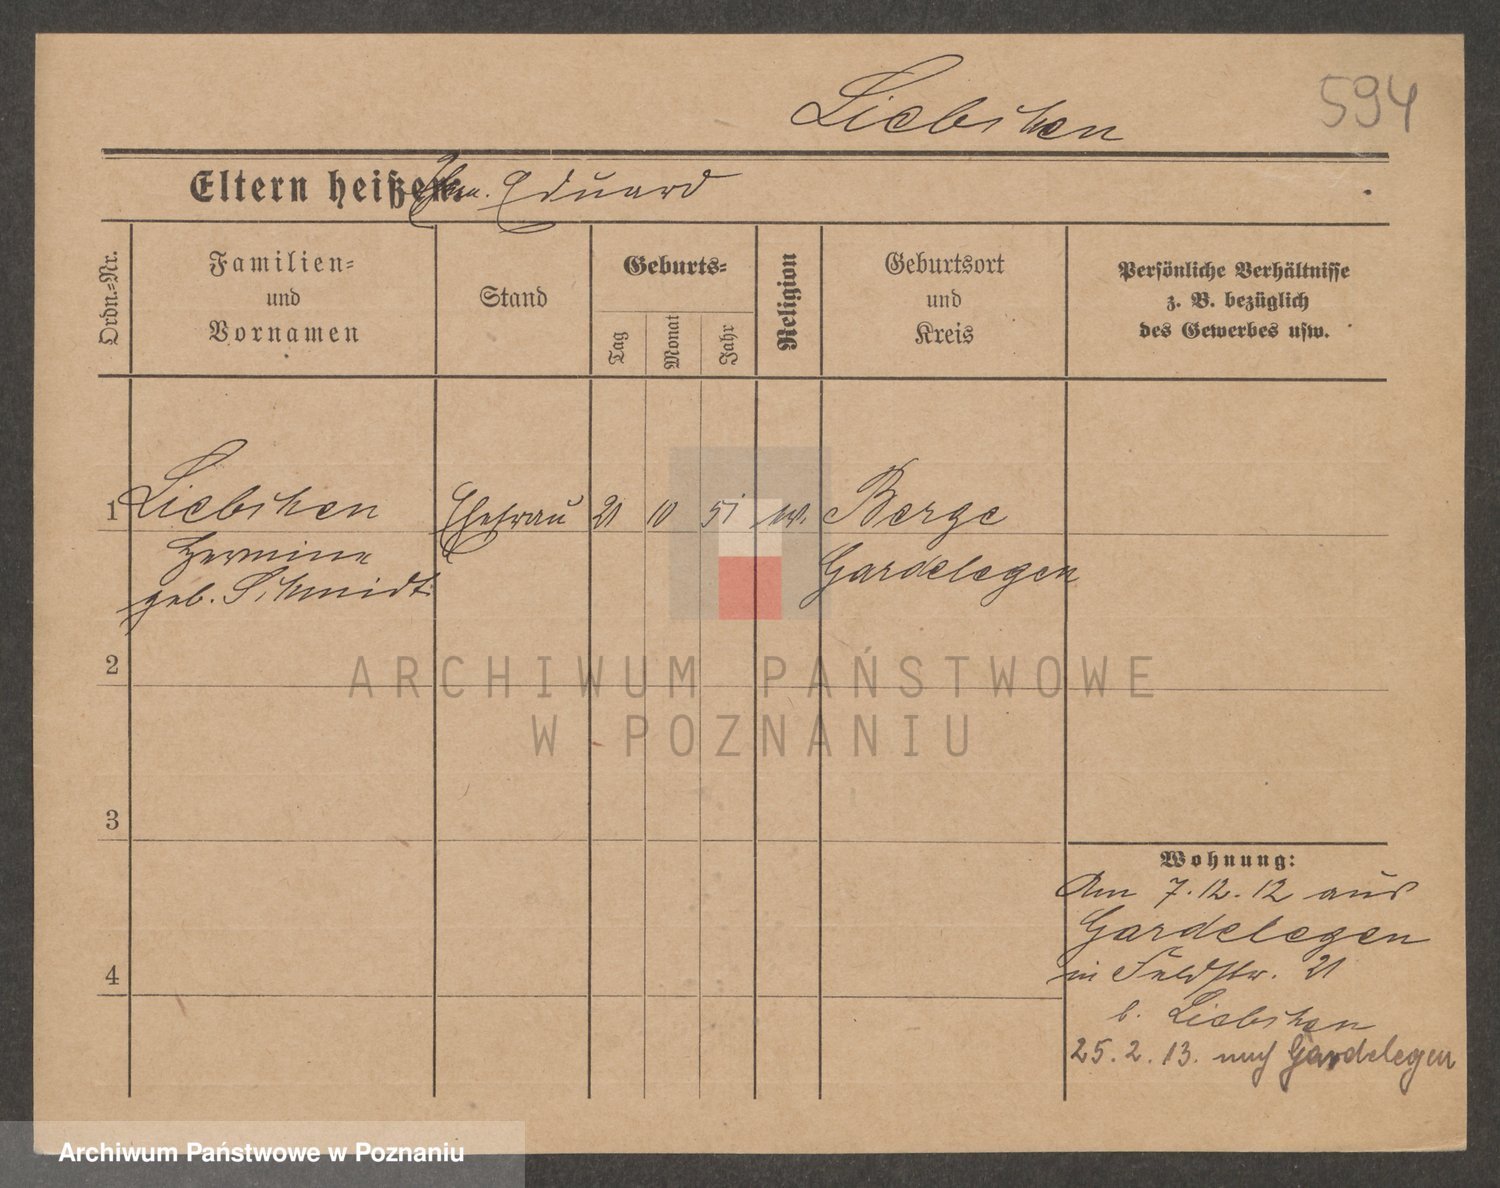 Liebchen
594
Eltern heißen: Ehem. Eduard
Ordn.-Nr.
Familien-
und
Vornamen
Stand
Geburts-
Tag
Monat
Jahr
Religion
Geburtsort
und
Kreis
Persönliche Verhältnisse
z. B. bezüglich
des Gewerbes usw.
1 Liebchen Ehefrau 21 10 51 ev. Berge
Hermine Gardelegen
geb. Schmidt
2
ARCHIWUM PAŃSTWOWE
W POZNANIU
3
Wohnung:
Am 7.12.12 aus
Gardelegen
4
in Feldstr. 21
b. Liebchen
25.2.13. nach Gardelegen
Archiwum Państwowe w Poznaniu